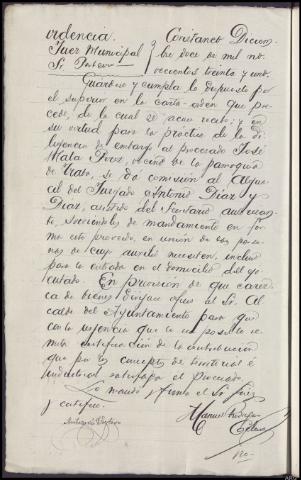 videncia. Constanti Diciem
Juez Municipal bre doce de mil no
Sr. Pastor vecientos treinta y uno.
Guárdese y cumpla lo dispuesto por
el superior en la carta-orden que pre
cede, de la cual se acuse recibo; y en
su virtud para la práctica de la di
ligencia de embargo al procesado José
Mata Pérez, vecino de la parroquia
de Trabo, se dá comisión al Algua
cil del Juzgado Antonio Díaz y
Díaz, asistido del Secretario autorizan
te, sirviéndoles de mandamiento en for
ma este proveído, en unión de las perso
nas de cuyo auxilio necesiten, incluso
para la entrada en el domicilio del eje
cutado. En previsión de que carez
ca de bienes diríjase oficio al Sr. Al
calde del Ayuntamiento para que
con la urgencia que le sea posible re
mita certificación de la contribución
que por los conceptos de territorial é
industrial satisfaga el procesado
Lo mandó y firma el Sr. Juez
y certifico.
Manuel